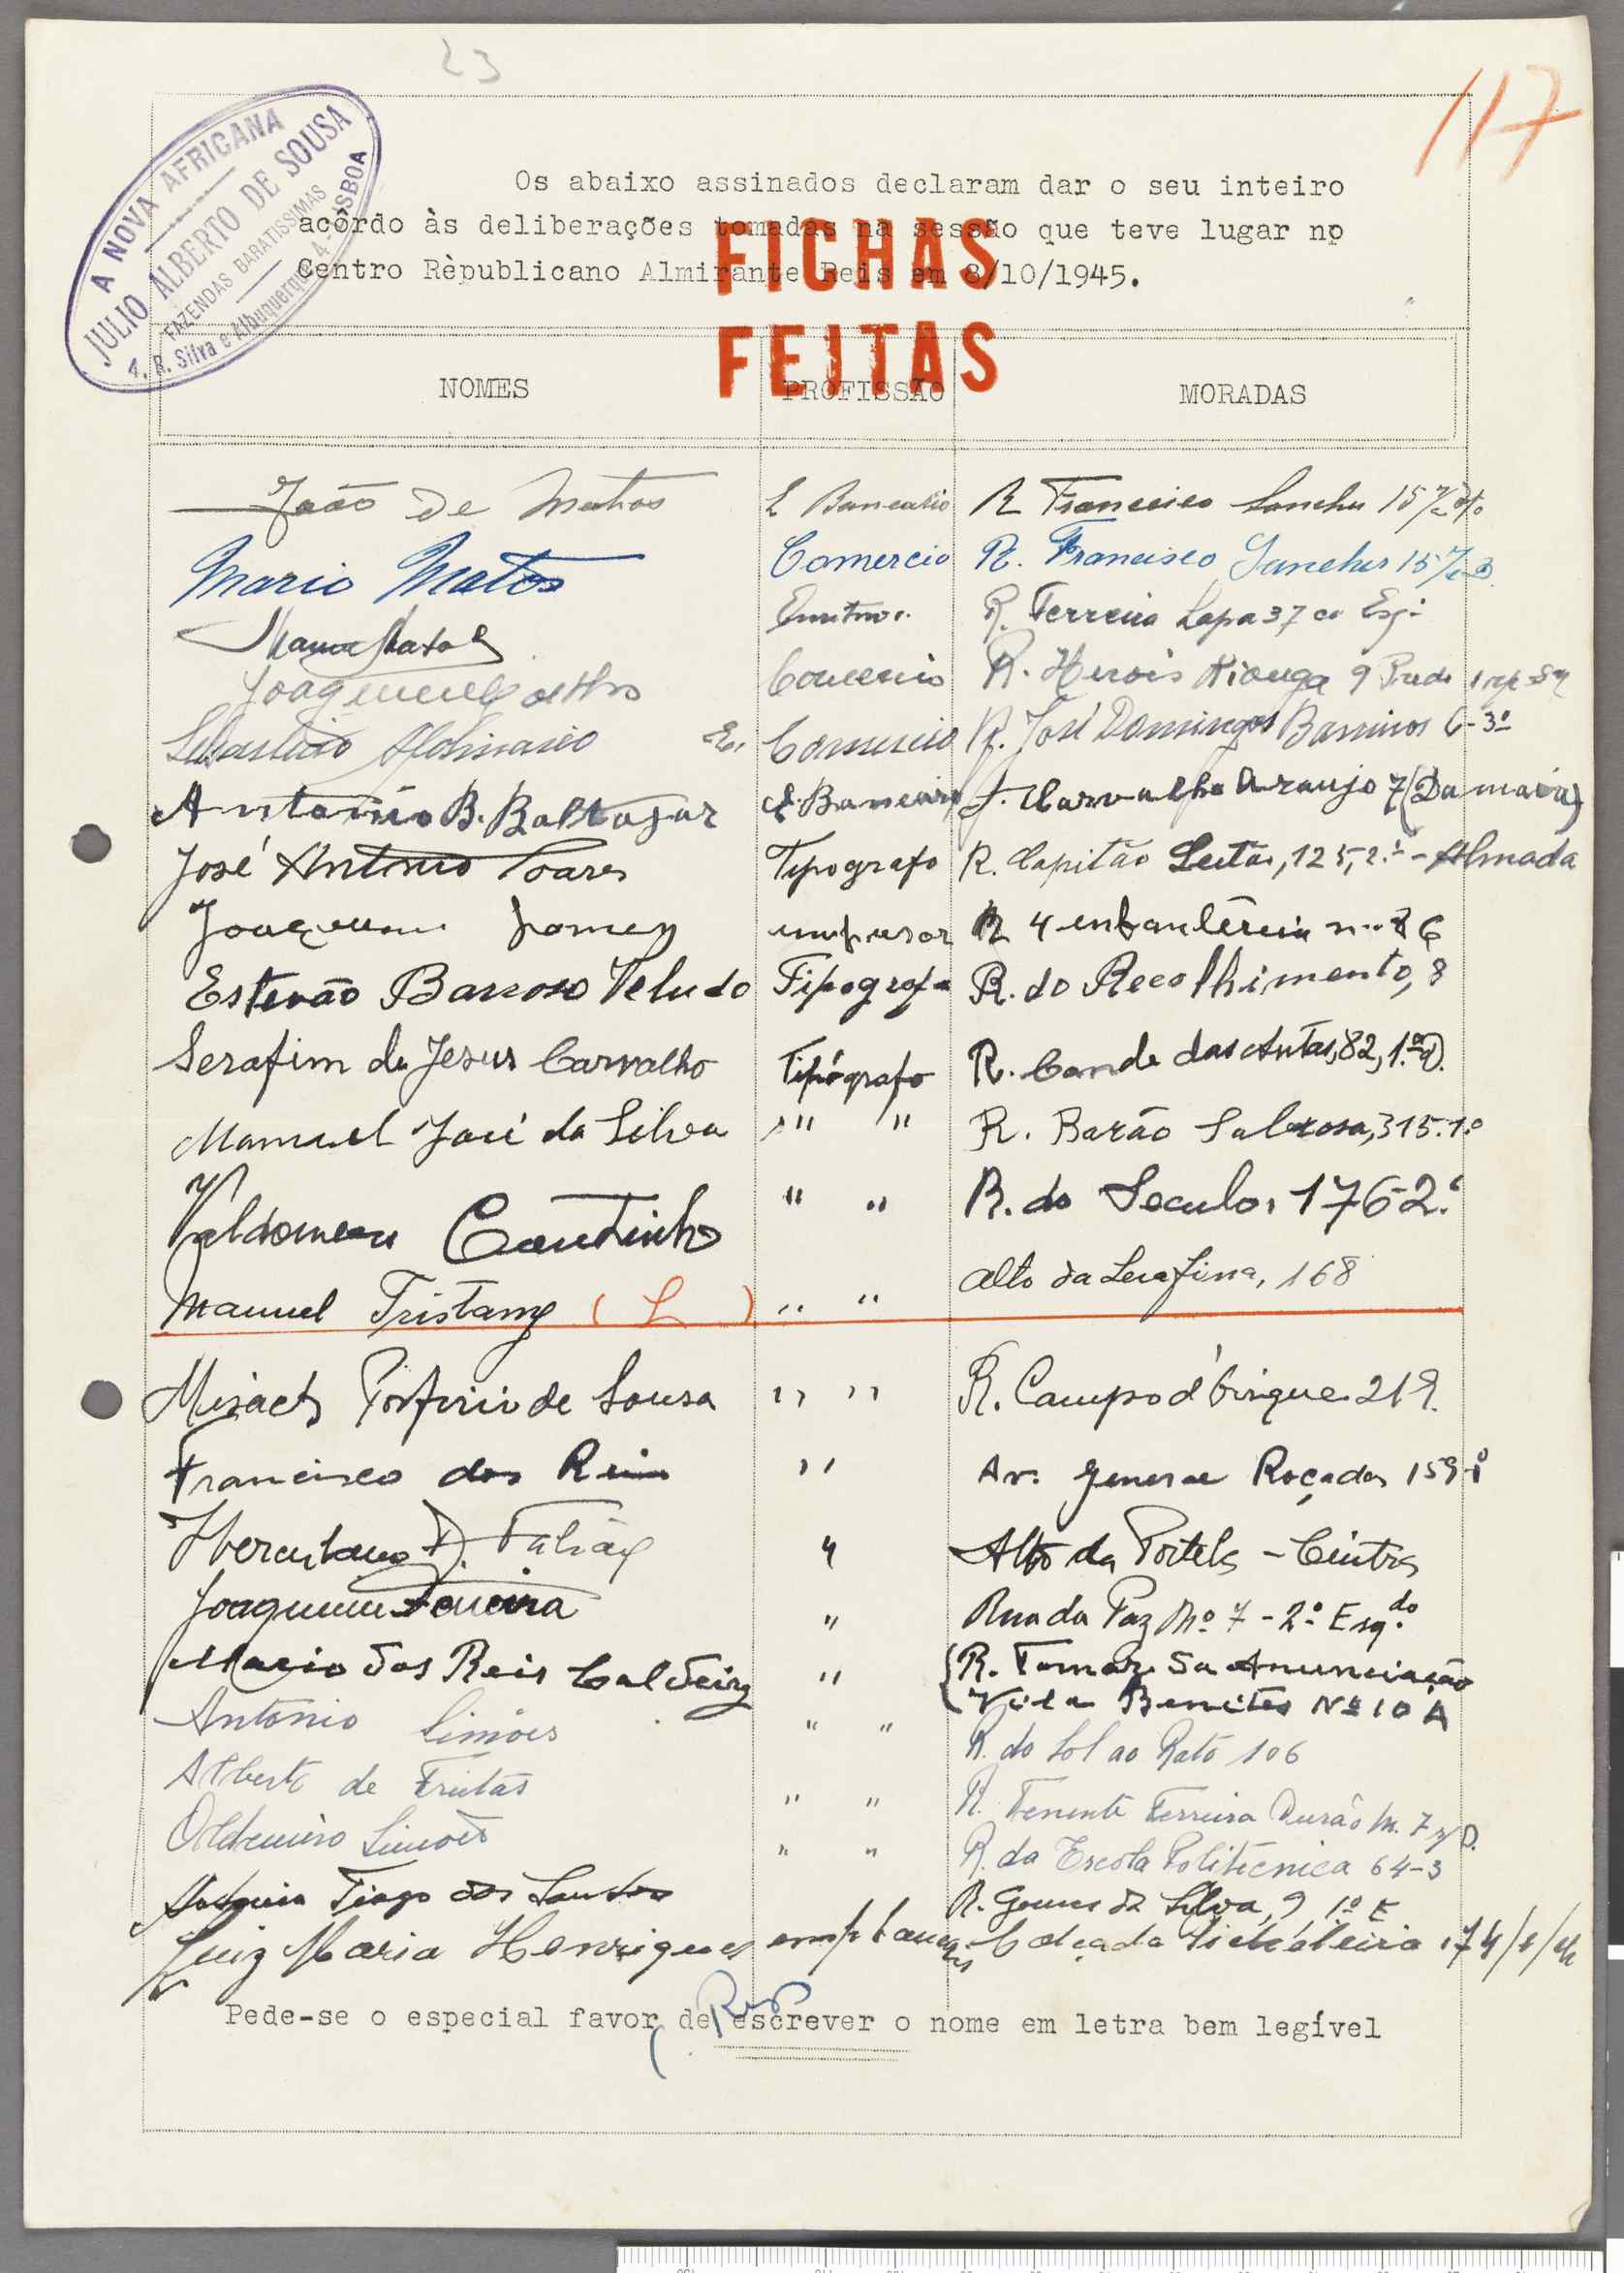 23
117
A NOVA AFRICANA
JULIO ALBERTO DE SOUSA
FAZENDAS BARATISSIMAS
4, R. Silva e Albuquerque, 4 - LISBOA
Os abaixo assinados declaram dar o seu inteiro
acôrdo às deliberações tomadas na sessão que teve lugar no
Centro Rèpublicano Almirante Reis em 8/10/1945.
FICHAS
FEITAS
NOMES PROFISSÃO MORADAS
João de Mattos Bancario R Francisco Sanches 15
Mario Matos Comercio R. Francisco Sanches 15
R. Ferreira Lapa 37 Esq.
Joaquim Coelho Comercio R. Herois Kionga 9
Sebastião Comercio R. José Domingos Barreiros 6-3º
Antonio B. Baltazar E. Bancario Carvalho Araujo 7 (Damaia)
José Antonio Soares Tipografo R. Capitão Leitão, 125, 2.º - Almada
Joaquim Gomes impresor R 4 enfantêria
Estevão Barroso Veludo Tipografo R. do Recolhimento, 8
Serafim de Jesus Carvalho Tipógrafo R. Conde das Antas, 82, 1.º D.
Manuel José da Silva " " R. Barão Sabrosa, 315.1.º
Coutinho " " R. do Seculo, 176-2.º
Manuel Tristany ( L ) " " Alto da Serafina, 168
Misael Porfirio de Sousa " " R. Campo d'Ourique 219.
Francisco dos Reis " Av. General Roçadas 159
Herculano Falcão " Alto da Portela - Cintra
Joaquim Ferreira " Rua da Paz Nº 7 - 2º Esqdo.
Mario dos Reis Caldeira " R. Tomaz da Anunciação
Vila Benites Nº 10 A
Antonio Simões " " R. do Sol ao Rato 106
Alberto de Freitas " " R. Tenente Ferreira Durão 7 D.
Oldemiro Simões " " R. da Escola Politécnica 64-3
Tiago dos Santos R. Gomes da Silva, 9 1º E
Luiz Maria Henriques Calçada
Pede-se o especial favor de escrever o nome em letra bem legível